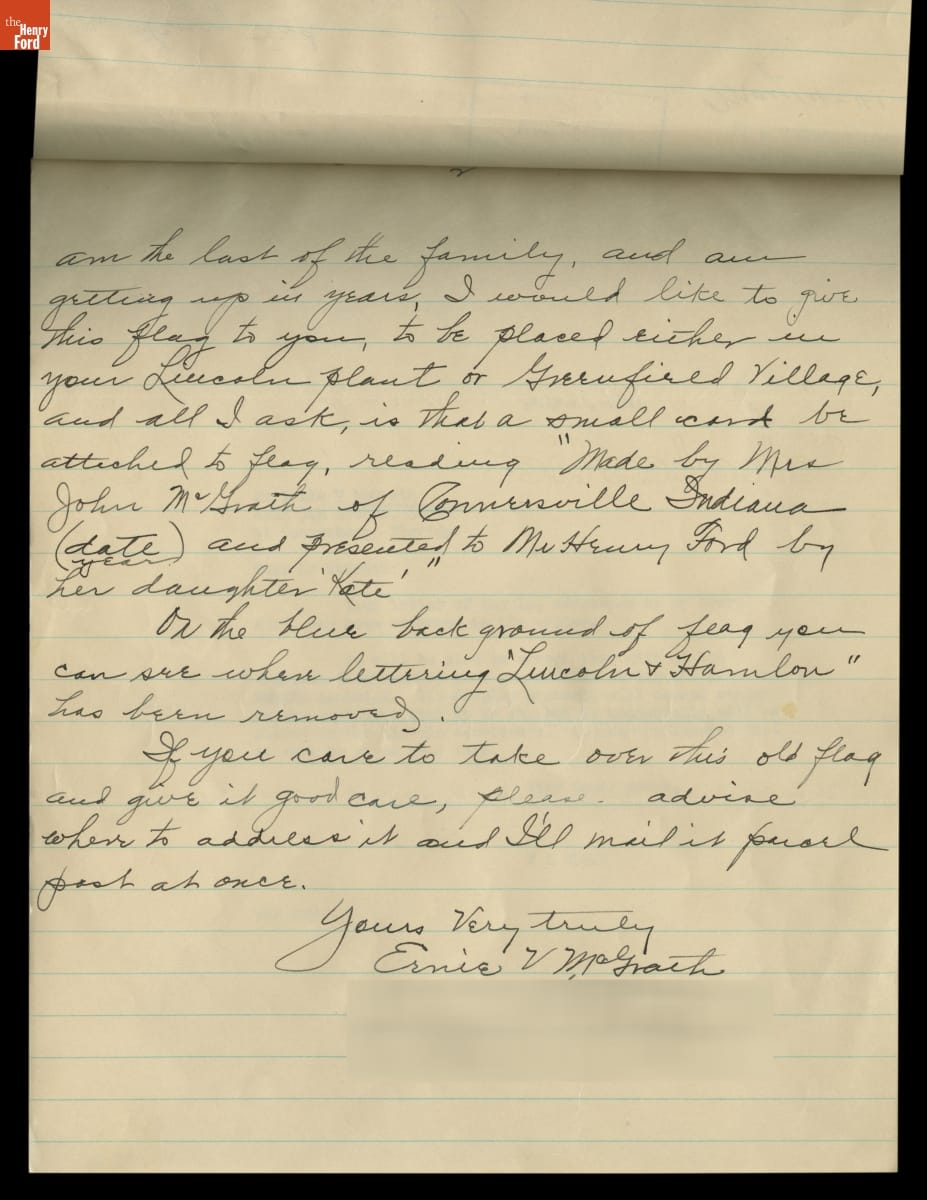 the
Henry
Ford
2
am the last of the family, and am
getting up in years, I would like to give
this flag to you, to be placed either in
your Lincoln plant or Greenfield Village,
and all I ask, is that a small card be
attached to flag, reading "Made by Mrs
John McGrath of Connersville Indiana
(date) and presented to Mr Henry Ford by
year
her daughter 'Kate' "
On the blue back ground of flag you
can see where lettering "Lincoln & Hamlon"
has been removed.
If you care to take over this old flag
and give it good care, please. advise
where to address it and I'll mail it parcel
post at once.
Yours Very truly
Ernie V McGrath